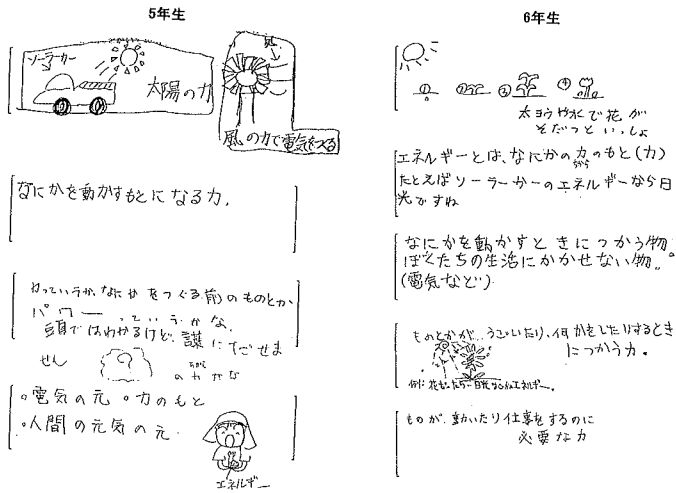 5年生
ソーラーカー
太陽の力
風
風の力で電気をつくる
なにかを動かすもとになる力。
なにかをつくる前のものとか
パワーっていうかな。
頭ではわかるけど、
せん
の力かな
。電気の元 。力のもと
。人間の元気の元
エネルギー
6年生
① ② ③ ④
太ヨウや水で花が
そだつといっしょ
エネルギーとは、なにかの力のもと(力)
ちから
たとえばソーラーカーのエネルギーなら日
光ですね
なにかを動かすときにつかう物。
ぼくたちの生活にかかせない物。
(電気など)
ものとかが…うごいたり、何かをしたりするとき
につかう力。
ものが、動いたり仕事をするのに
必要な力